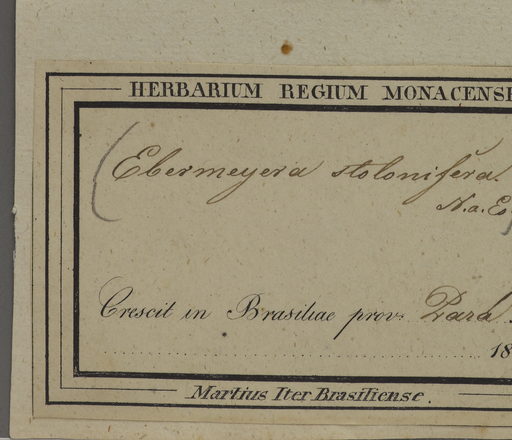 HERBARIUM REGIUM MONACENSE
(Ebermeyera stolonifera.
N.a.Es.)
Crescit in Brasiliae prov: Para.
18
Martius Iter Brasiliense.